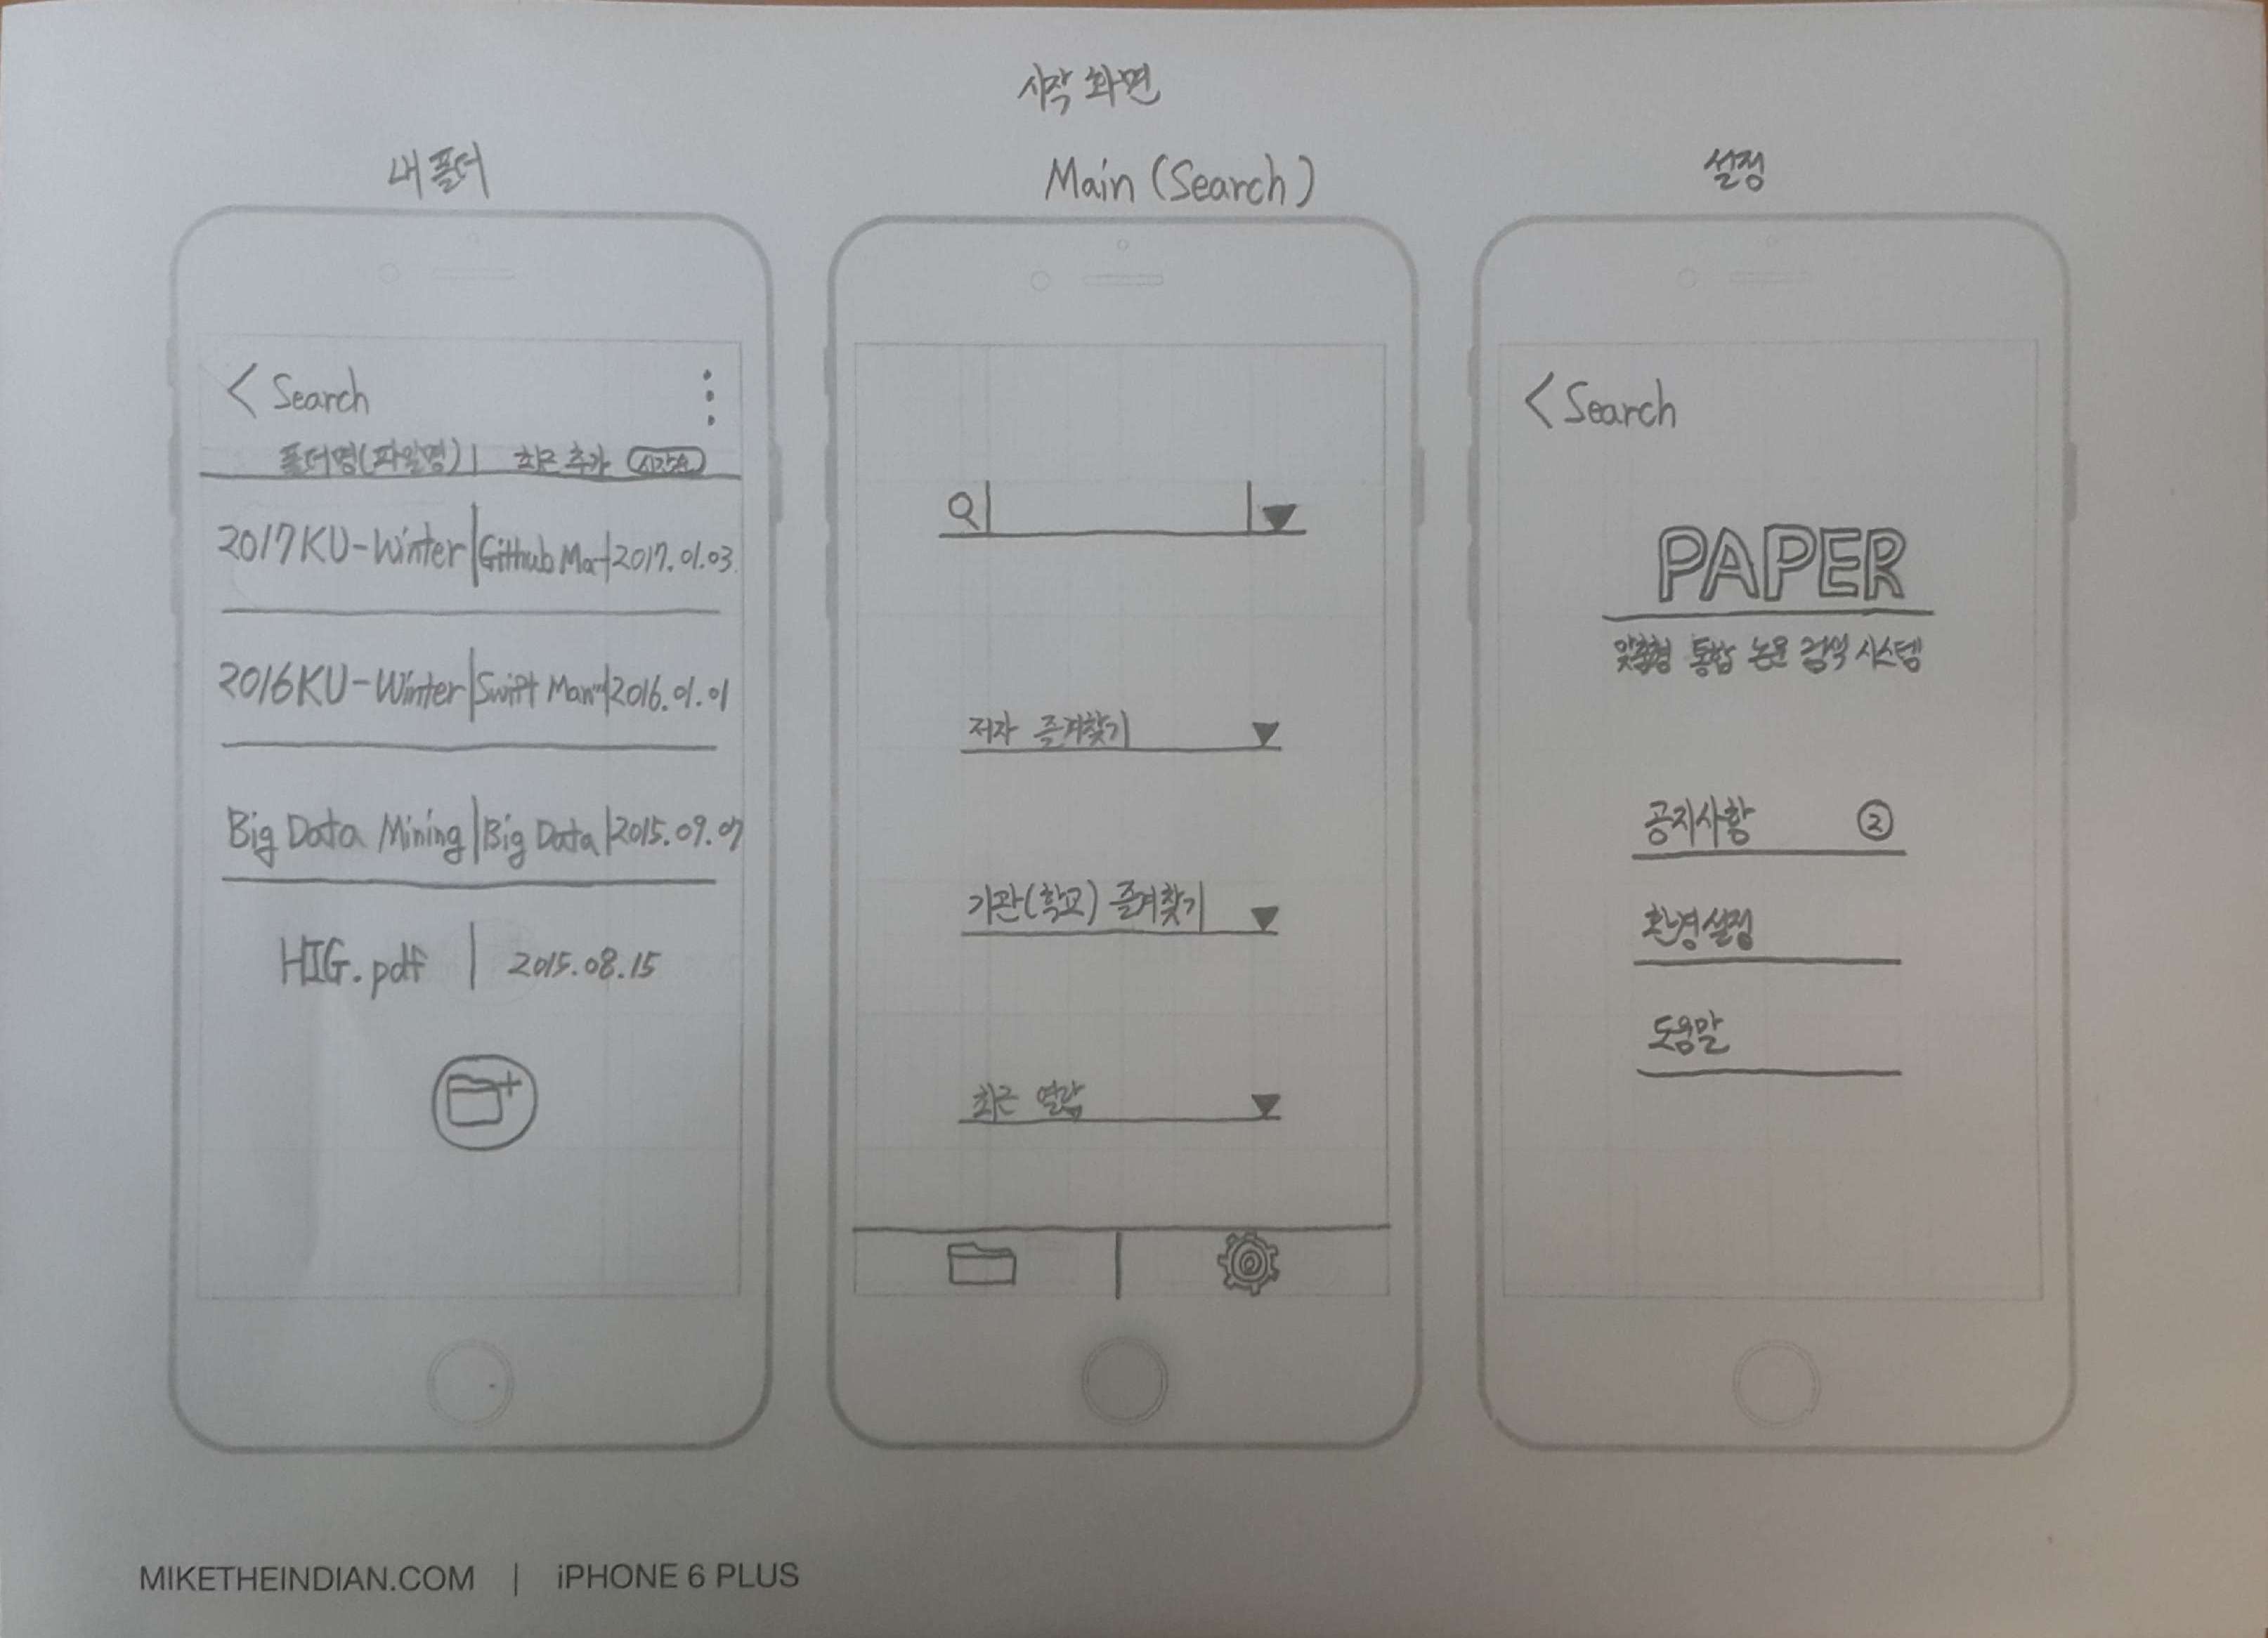 시작 화면
내 폴더
Main (Search)
설정
< Search
폴더명(파일명) | 최근 추가 시간순
2017KU-Winter | Github Ma | 2017.01.03.
2016KU-Winter | Swift Man | 2016.01.01
Big Data Mining | Big Data | 2015.09.07
HIG.pdf | 2015.08.15
저자 즐겨찾기
기관(학교) 즐겨찾기
최근 열람
< Search
PAPER
맞춤형 통합 논문 검색 시스템
공지사항 ②
환경설정
도움말
MIKETHEINDIAN.COM | iPHONE 6 PLUS